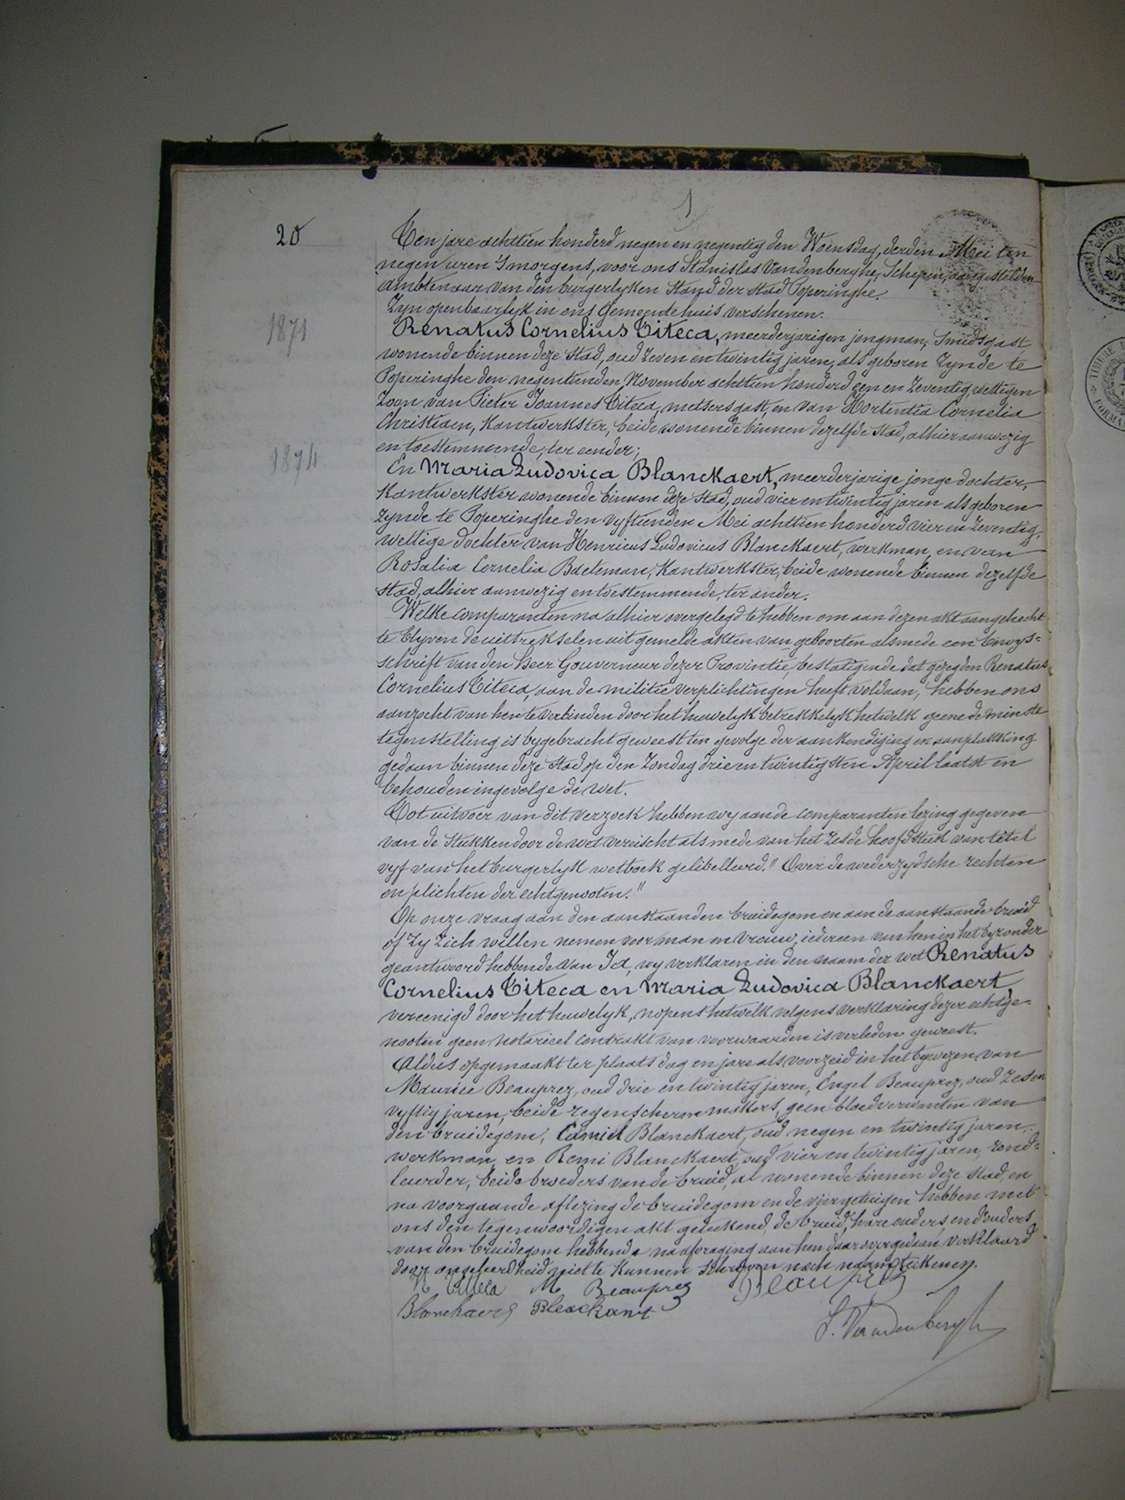 1
20
Ten jare achttien honderd negen en negentig den Woensdag, derden Mei ten
negen uren 's morgens, voor ons Stanislas Vandenberghe, Schepen, aangestelden
ambtenaar van den burgerlyken Stand der stad Poperinghe.
Zyn openbaarlyk in ons Gemeentehuis verschenen.
1871
Renatus Cornelius Titeca, meerderjarigen jongman, Smidsgast
wonende binnen deze Stad, oud zeven en twintig jaren, als geboren zynde te
Poperinghe den negentienden November achttien honderd een en zeventig, wettigen
Zoon van Pieter Joannes Titeca, metsersgast, en van Hortentia Cornelia
Christiaen, Kantwerkster, beide wonende binnen dezelfde Stad, alhier aanwezig
en toestemmende, ter eender;
1874
En Maria Ludovica Blanckaert, meerderjarige jonge dochter,
Kantwerkster wonende binnen deze Stad, oud vier en twintig jaren als geboren
zynde te Poperinghe den vyftienden Mei achttien honderd vier en zeventig,
wettige dochter van Henricus Ludovicus Blanckaert, werkman, en van
Rosalia Cornelia Baeteman, Kantwerkster, beide wonende binnen dezelfde
Stad, alhier aanwezig en toestemmende, ter ander.
Welke comparanten na alhier overgelegd te hebben om aan dezen akt aangehecht
te blyven de uittrekselen uit gemelde akten van geboorten alsmede een bewys=
schrift van den Heer Gouverneur dezer Provintie, bestatigende dat gezegden Renatus
Cornelius Titeca, aan de militie verplichtingen heeft voldaan, hebben ons
aanzocht van hen te verbinden door het huwelyk betrekkelyk hetwelk geene de minste
tegenstelling is bygebracht geweest ten gevolge der aankondiging en aanplakking
gedaan binnen deze Stad op den Zondag drie en twintigsten April laatst en
behouden ingevolge de wet.
Tot uitvoer van dit verzoek hebben wy aan de comparanten lezing gegeven
van de stukken door de wet vereischt alsmede van het zesde hoofdstuk van titel
vyf van het burgerlyk wetboek gelibelleerd. " Over de wederzydsche rechten
en plichten der echtgenooten. "
Op onze vraag aan den aanstaanden bruidegom en aan de aanstaande bruid
of zy zich willen nemen voor man en vrouw, iedereen van hen in het byzonder
geantwoord hebbende van Ja, wy verklaren in den naam der wet Renatus
Cornelius Titeca en Maria Ludovica Blanckaert
vereenigd door het huwelyk, nopens hetwelk volgens verklaring dezer echtge=
nooten geen notarieel contrakt van voorwaarden is verleden geweest.
Aldus opgemaakt ter plaats dag en jare als voorzeid in het bywezen van
Maurice Beauprez, oud drie en twintig jaren, Engel Beauprez, oud zes en
vyftig jaren, beide regenscherm makers, geen bloedverwanten van
den bruidegom, Camiel Blanckaert, oud negen en twintig jaren,
werkman, en Remi Blanckaert, oud vier en twintig jaren, rond=
leurder, beide broeders van de bruid, al wonende binnen deze stad, en
na voorgaande aflezing de bruidegom en de vier getuigen hebben met
ons den tegenwoordigen akt geteekend, de bruid, hare ouders, en d'ouders
van den bruidegom hebbende na afvraging aan hen daarover gedaan verklaard
door ongeleerdheid niet te kunnen schryven noch naamteekenen.
R Titeca M Beauprez Beauprez
Blanckaert Blanckaert
S. Vandenberghe